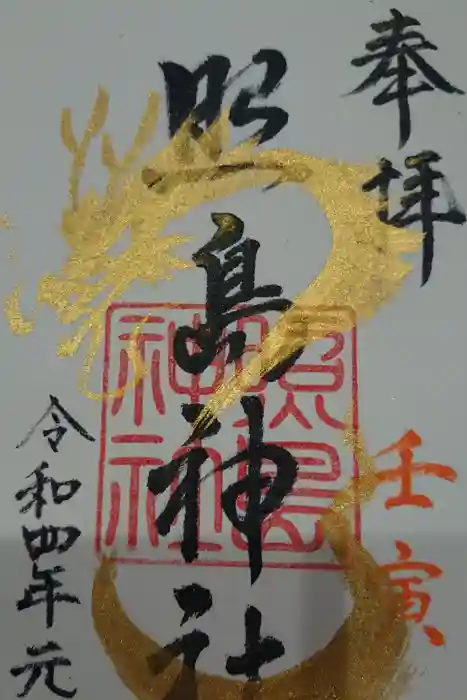 奉拝
壬寅
照島神社
照島
神社
令和四年元